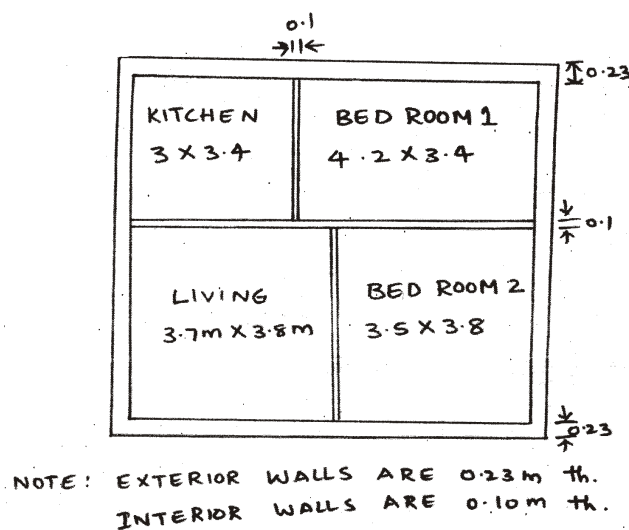 0.1
0.23
KITCHEN
3 X 3.4
BED ROOM 1
4.2 X 3.4
0.1
LIVING
3.7m X 3.8m
BED ROOM 2
3.5 X 3.8
0.23
NOTE: EXTERIOR WALLS ARE 0.23m th.
INTERIOR WALLS ARE 0.10m th.